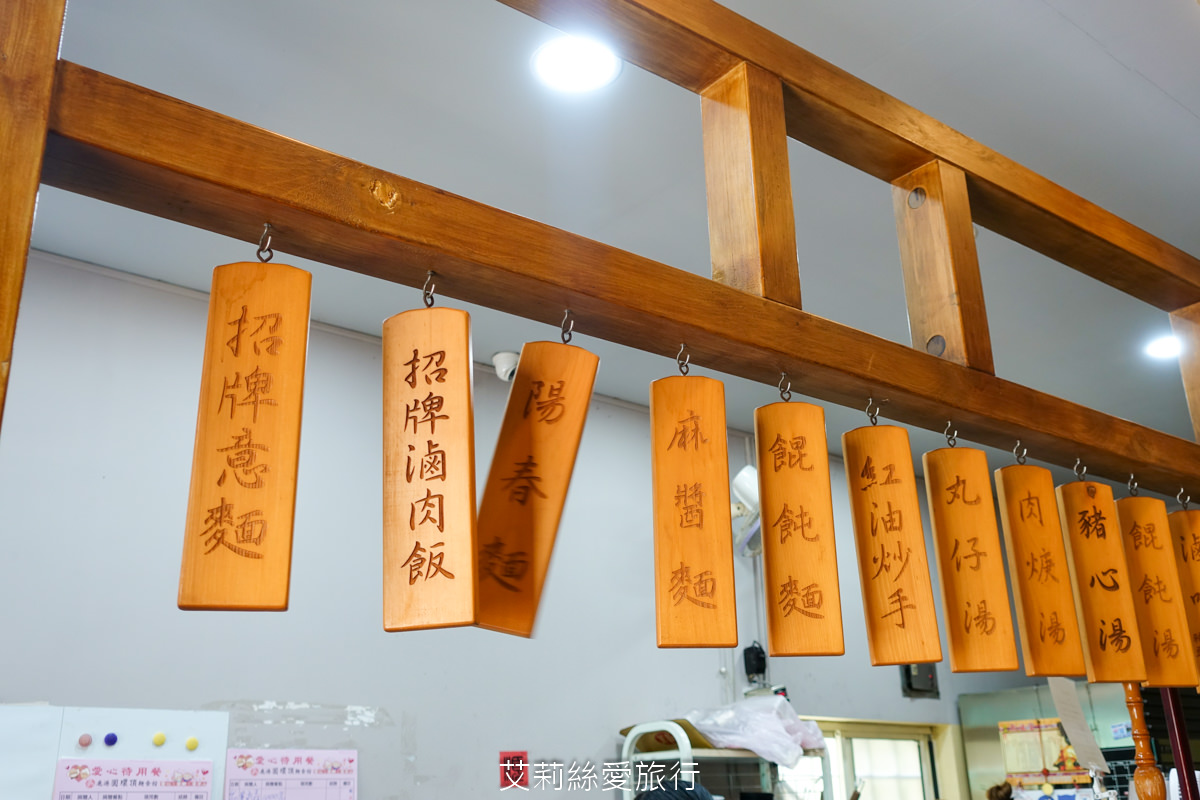 招牌意麵
招牌滷肉飯
陽春麵
麻醬麵
餛飩麵
紅油炒手
丸仔湯
肉焿湯
豬心湯
餛飩湯
滷味
愛心待用餐
愛心待用餐
艾莉絲愛旅行